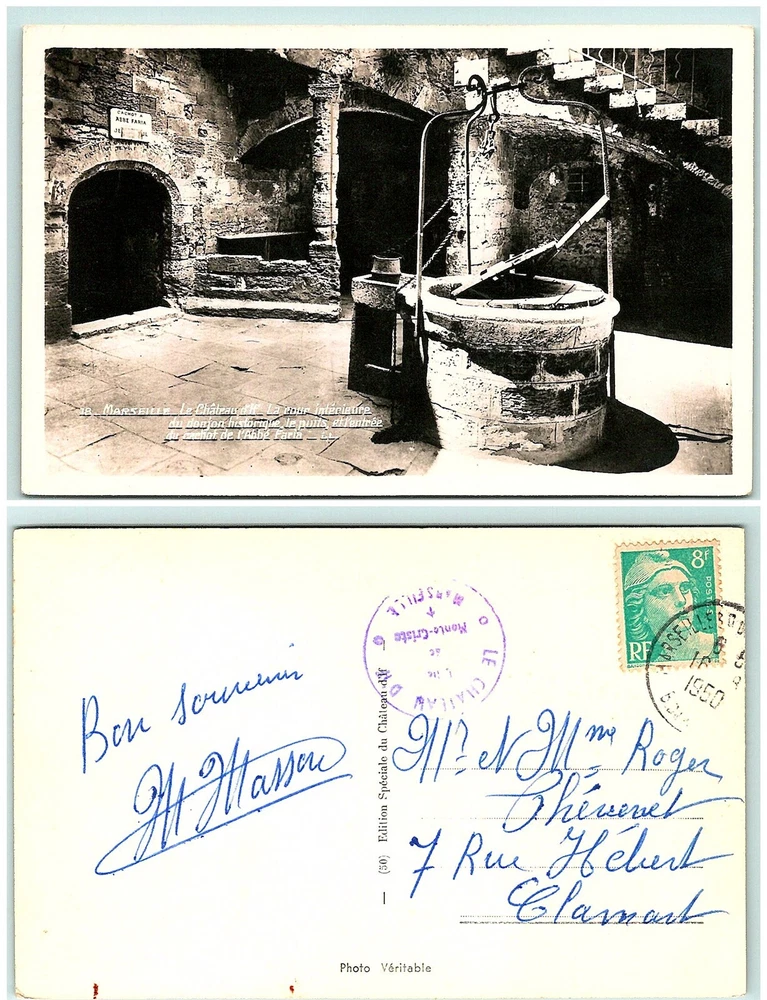 CACHOT DE
ABBÉ FARIA
18. MARSEILLE _ Le Château d'If. La cour intérieure
du donjon historique, le puits et l'entrée
du cachot de l'Abbé Faria _ LL
8f
POSTES
RF
MARSEILLE
1950
LE CHATEAU D'IF
MARSEILLE
Monte-Cristo
de
L'Ile
Bon souvenir
M. Masson
(50) Edition Spéciale du Château-d'If
Mr. et Mme Roger
Thévenet
7 Rue Hébert
Clamart
Photo Véritable